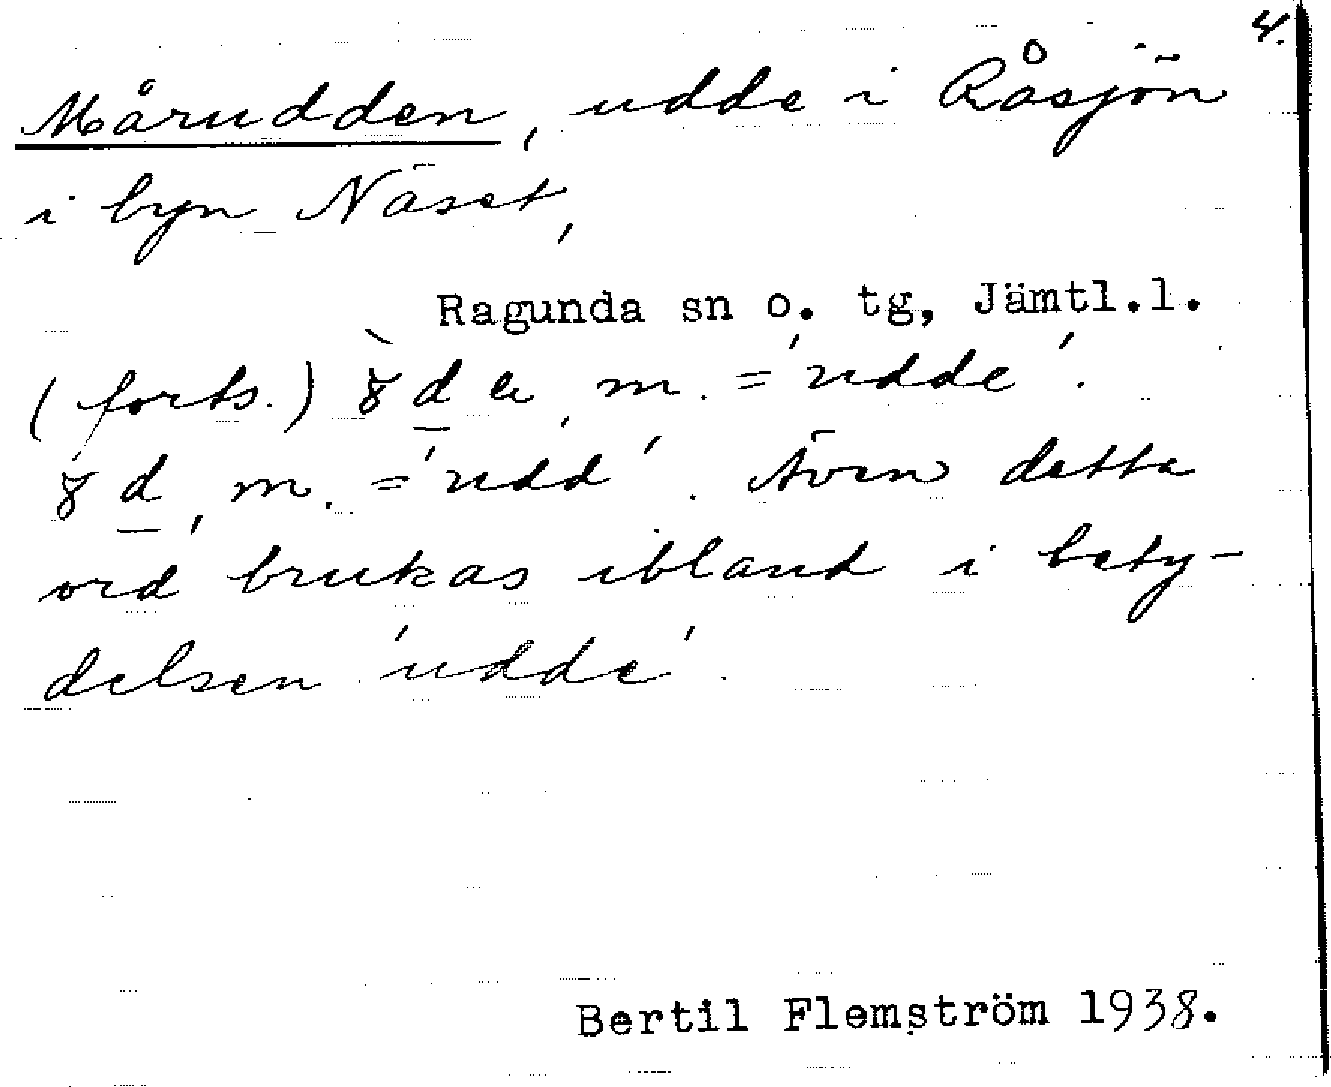 4.
Mårudden, udde i Råsjön
i byn Näset,
Ragunda sn o. tg, Jämtl.l.
(forts.) m. = 'udde'.
m. = 'udd'. Även detta
ord brukas ibland i bety-
delsen 'udde'.
Bertil Flemström 1938.